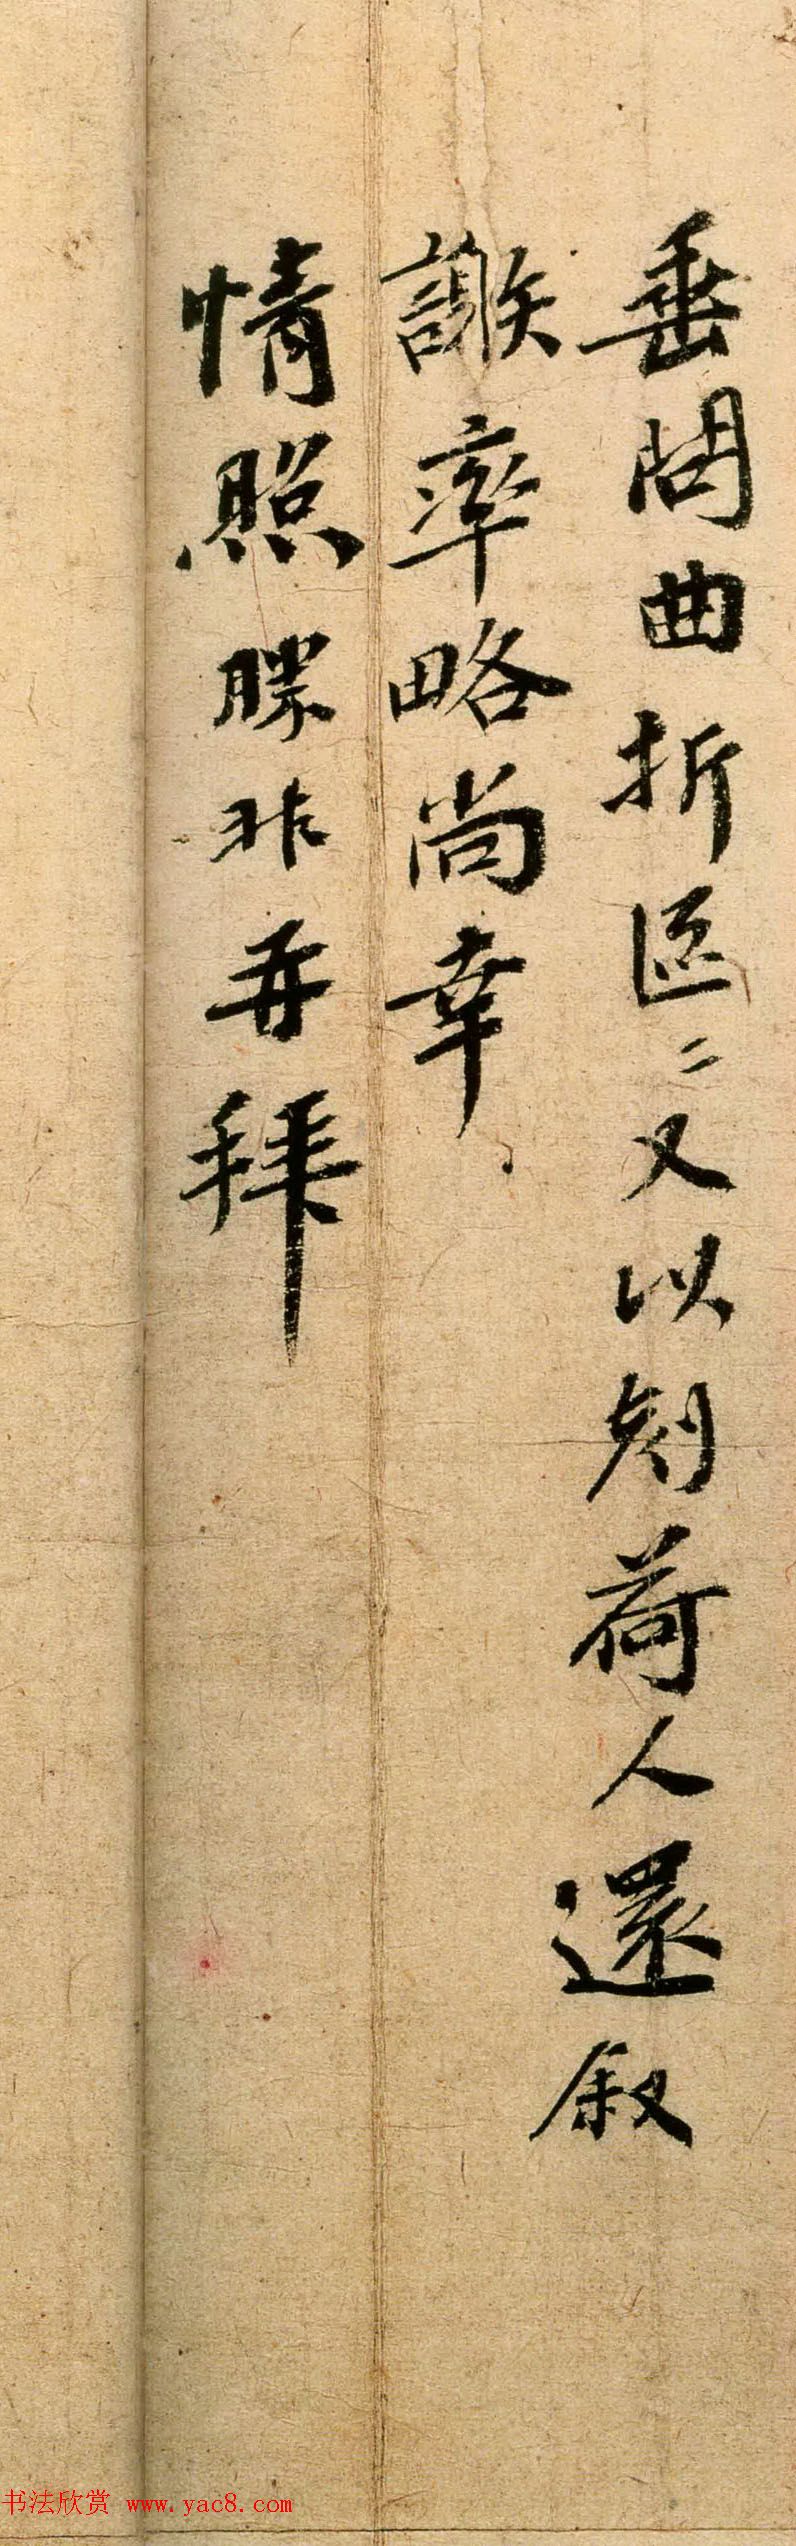 垂問曲折區〻又以刻荷人還叙
謝率略尚幸
情照勝非再拜
书法欣赏 www.yac8.com